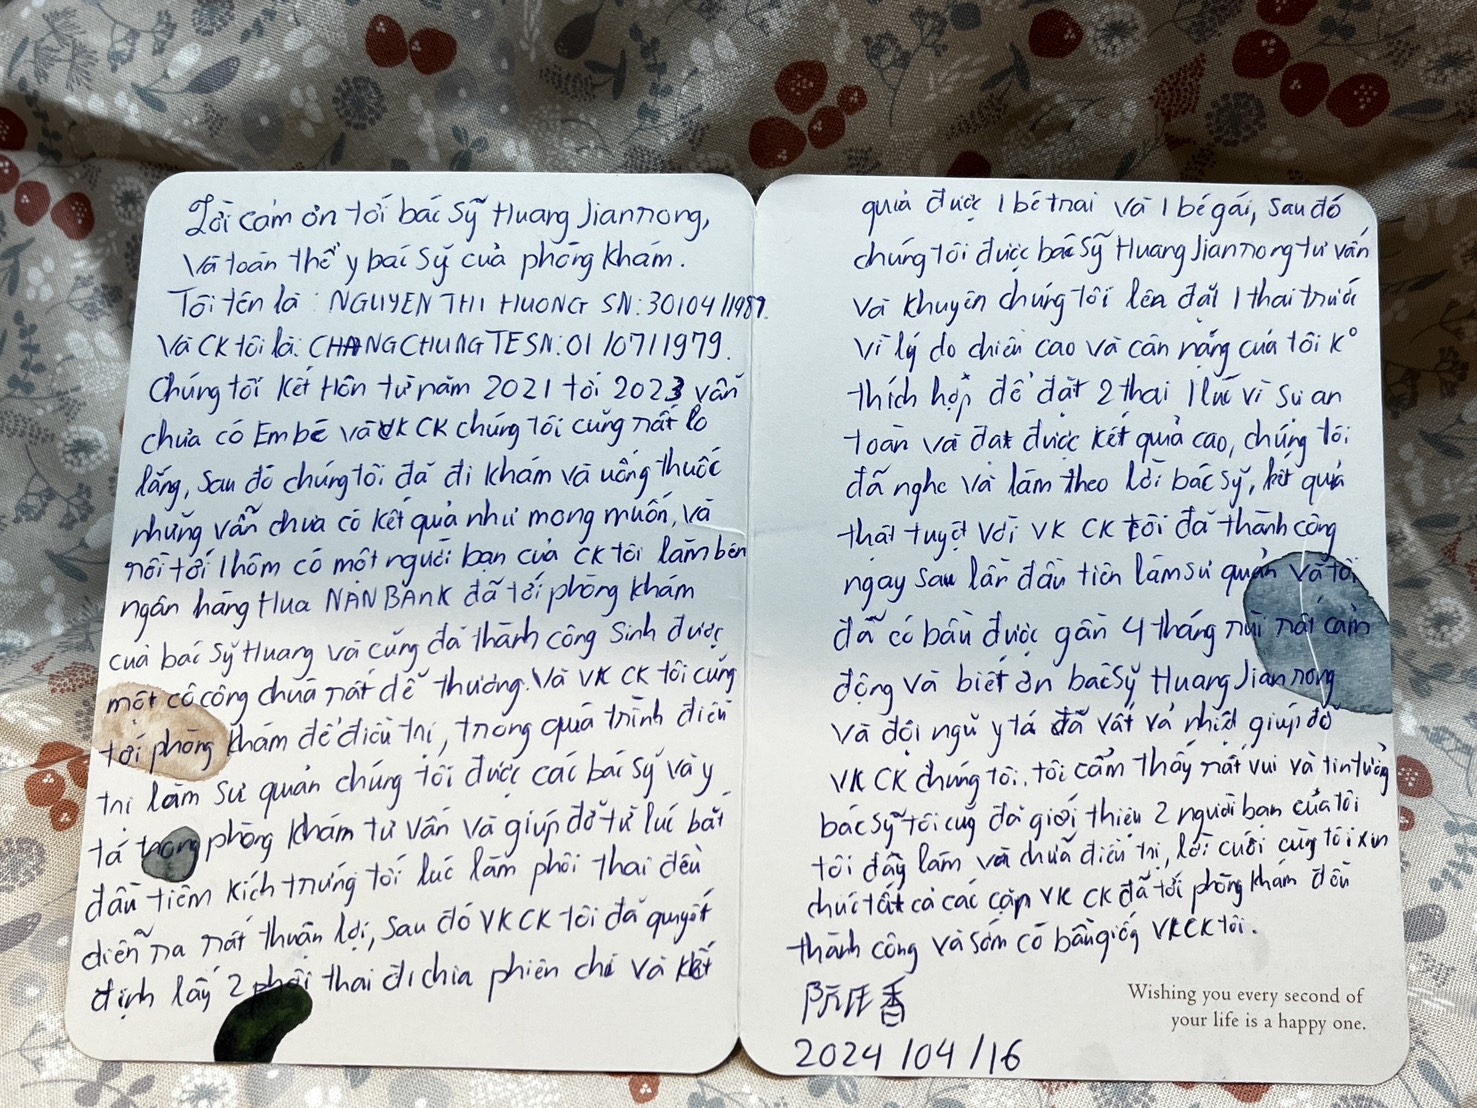 Lời cảm ơn tới bác sỹ Huang Jianrong,
và toàn thể y bác sỹ của phòng khám.
Tôi tên là : NGUYEN THI HUONG SN: 30/04/1987.
Và CK tôi là: CHANG CHUNG TE SN: 01/07/1979.
Chúng tôi kết Hôn từ năm 2021 tới 2023 vẫn
chưa có Em bé và VK CK chúng tôi cũng rất lo
lắng, sau đó chúng tôi đã đi khám và uống thuốc
nhưng vẫn chưa có kết quả như mong muốn, và
rồi tới 1 hôm có một người bạn của CK tôi làm bên
ngân hàng Hua NAN BANK đã tới phòng khám
của bác sỹ Huang và cũng đã thành công sinh được
một cô công chúa rất dễ thương. Và VK CK tôi cũng
tới phòng khám để điều trị, trong quá trình điều
trị làm sư quản chúng tôi được các bác sỹ và y
tá trong phòng khám tư vấn và giúp đỡ từ lúc bắt
đầu tiêm kích trứng tới lúc làm phôi thai đều
diễn ra rất thuận lợi, sau đó VK CK tôi đã quyết
định lấy 2 phôi thai đi chia phiên chi và kết
quả được 1 bé trai và 1 bé gái, sau đó
chúng tôi được bác sỹ Huang Jianrong tư vấn
và khuyên chúng tôi lên đặt 1 thai trước
vì lý do chiều cao và cân nặng của tôi K°
thích hợp để đặt 2 thai 1 lúc vì sự an
toàn và đạt được kết quả cao, chúng tôi
đã nghe và làm theo lời bác sỹ, kết quả
thật tuyệt vời VK CK tôi đã thành công
ngay sau lần đầu tiên làm sư quản và tôi
đã có bầu được gần 4 tháng rùi rất cảm
động và biết ơn bác sỹ Huang Jianrong
và đội ngũ y tá đã vất vả nhiệt giúp đỡ
VK CK chúng tôi. tôi cảm thấy rất vui và tin tưởng
bác sỹ tôi cũg đã giới thiệu 2 người bạn của tôi
tới đây làm và chữa điều trị, lời cuối cùg tôi xin
chúc tất cả các cặp VK CK đã tới phòng khám đều
thành công và sớm có bầu giốg VK CK tôi.
阮氏香
2024/04/16
Wishing you every second of
your life is a happy one.